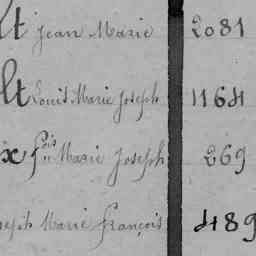 lt Jean Marie 2081
lt Louis Marie Joseph 1164
ix fois Marie Joseph 269
seph Marie François 489